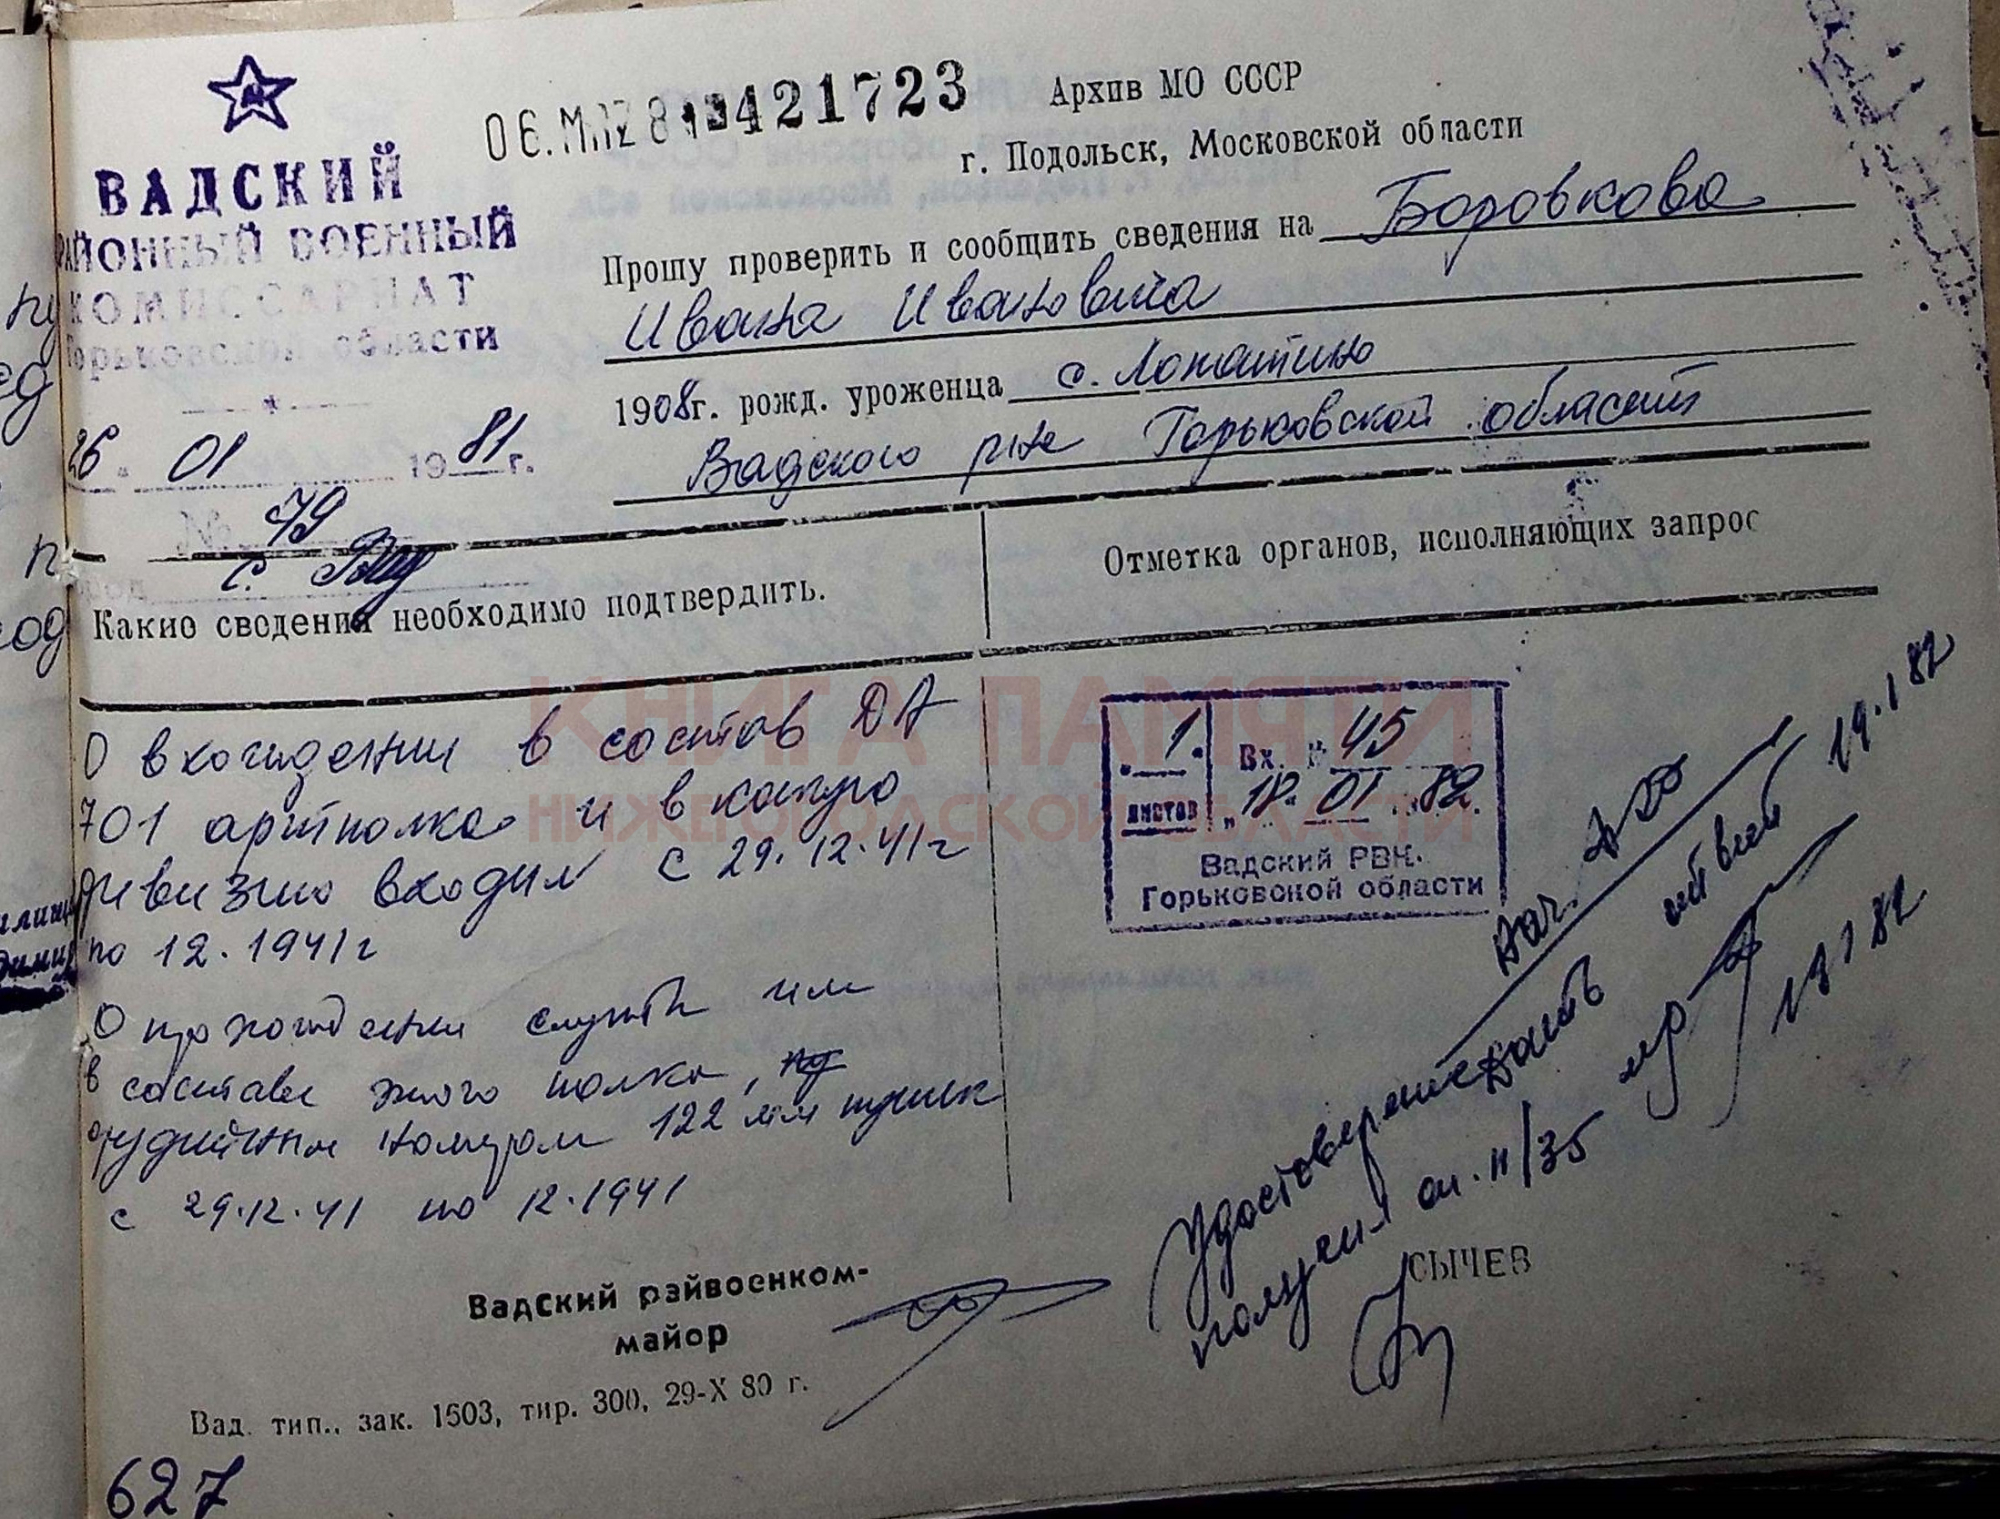 ВАДСКИЙ
РАЙОННЫЙ ВОЕННЫЙ
КОМИССАРИАТ
Горьковской области
26 " 01 1981 г.
№ 79
с. Вад
421723
Архив МО СССР
г. Подольск, Московской области
Прошу проверить и сообщить сведения на Боровкова
Ивана Ивановича
1908 г. рожд. уроженца с. Лопатино
Вадского р-на Горьковской области
Какие сведения необходимо подтвердить.
Отметка органов, исполняющих запрос
О вхождении в состав ДА
701 артполка и в какую
дивизию входил с 29.12.41г
по 12.1941г
О прохождении службы им
в составе этого полка,
орудийным номером 122 мм пушек
с 29.12.41 по 12.1941
"1" Вх. № 45
листов
"18" 01 1982.
Вадский РВК.
Горьковской области
КНИГА ПАМЯТИ
НИЖЕГОРОДСКОЙ ОБЛАСТИ
Нач.
19.1 82
Удостоверение
получил
18 1 82
Вадский райвоенком-
майор
СЫЧЕВ
Вад. тип., зак. 1503, тир. 300, 29-X 80 г.
627